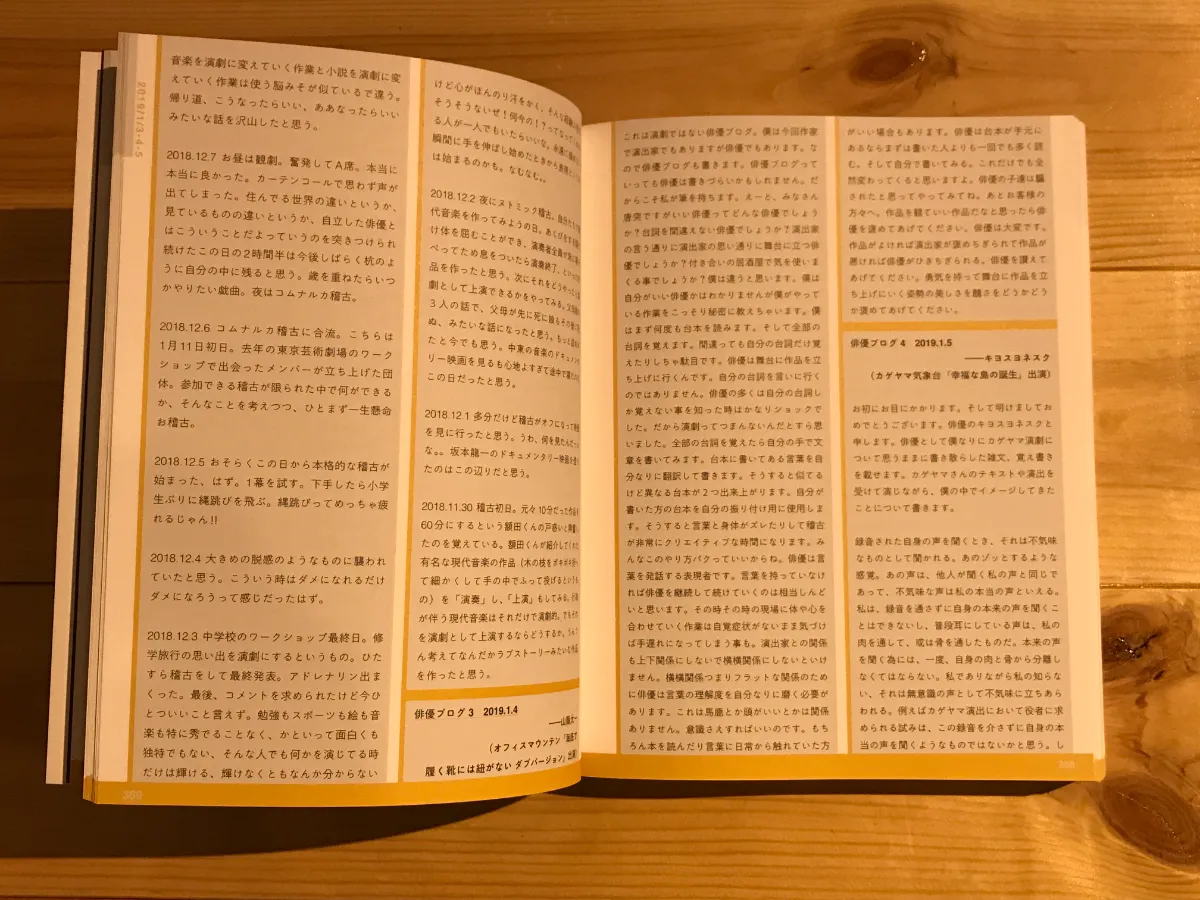 2019/1/3・4・5
音楽を演劇に変えていく作業と小説を演劇に変
えていく作業は使う脳みそが似ているで違う。
帰り道、こうなったらいい、ああなったらいい
みたいな話を沢山したと思う。
2018.12.7 お昼は観劇。奮発してA席。本当に
本当に良かった。カーテンコールで思わず声が
出てしまった。住んでる世界の違いというか、
見ているものの違いというか、自立した俳優と
はこういうことだよっていうのを突きつけられ
続けたこの日の2時間半は今後しばらく杭のよ
うに自分の中に残ると思う。歳を重ねたらいつ
かやりたい戯曲。夜はコムナルカ稽古。
2018.12.6 コムナルカ稽古に合流。こちらは
1月11日初日。去年の東京芸術劇場のワーク
ショップで出会ったメンバーが立ち上げた団
体。参加できる稽古が限られた中で何ができる
か、そんなことを考えつつ、ひとまず一生懸命
お稽古。
2018.12.5 おそらくこの日から本格的な稽古が
始まった、はず。1幕を試す。下手したら小学
生ぶりに縄跳びを飛ぶ。縄跳びってめっちゃ疲
れるじゃん!!
2018.12.4 大きめの脱感のようなものに襲われ
ていたと思う。こういう時はダメになれるだけ
ダメになろうって感じだったはず。
2018.12.3 中学校のワークショップ最終日。修
学旅行の思い出を演劇にするというもの。ひた
すら稽古をして最終発表。アドレナリン出ま
くった。最後、コメントを求められたけど今ひ
とついいこと言えず。勉強もスポーツも絵も音
楽も特に秀でることなく、かといって面白くも
独特でもない、そんな人でも何かを演じてる時
だけは輝ける、輝けなくともなんか分からない
けど心がほんのり汗をかく、そんな
そうそうないぜ!何今の!?ってなって
る人が一人でもいたらいいな。
瞬間に手を伸ばし始めたときから
は始まるのかも。なむなむ。。
2018.12.2 夜にヌトミック稽古。自分た
代音楽を作ってみようの日。あくびをする
け体を屈むことができ、演奏者全員が
べってため息をついたら演奏終了、といった
品を作ったと思う。次にそれをどうやったら
劇として上演できるかをやってみる。
3人の話で、父母が先に死に娘もその後
ぬ、みたいな話になったと思う。もっと
たと今でも思う。中東の音楽のドキュメンタ
リー映画を見るも心地よすぎて途中で寝
この日だったと思う。
2018.12.1 多分だけど稽古がオフになって映画
を見に行ったと思う。うわ、何を見たんだっけ
な。。坂本龍一のドキュメンタリー映画を
たのはこの辺りだと思う。
2018.11.30 稽古初日。元々10分だった作品
60分にするという額田くんの戸惑いと興奮
たのを覚えている。額田くんが紹介してくれた
有名な現代音楽の作品(木の枝をポキポキ折っ
て細かくして手の中でふって投げるというも
の)を「演奏」し、「上演」もしてみる。行為
が伴う現代音楽はそれだけで演劇的。でもそれ
を演劇として上演するならどうするか。うんう
ん考えてなんだかラブストーリーみたいな作品
を作ったと思う。
俳優ブログ 3 2019.1.4
――山縣太一
(オフィスマウンテン「海底で
履く靴には紐がない ダブバージョン」出演)
369
これは演劇ではない俳優ブログ。僕は今回作家
で演出家でもありますが俳優でもあります。な
ので俳優ブログも書きます。俳優ブログって
いっても俳優は書きづらいかもしれません。だ
からこそ私が筆を持ちます。えーと、みなさん
唐突ですがいい俳優ってどんな俳優でしょう
か?台詞を間違えない俳優でしょうか?演出家
の言う通りに演出家の思い通りに舞台に立つ俳
優でしょうか?付き合いの居酒屋で気を使いま
くる事でしょうか?僕は違うと思います。僕は
自分がいい俳優かはわかりませんが僕がやって
いる作業をこっそり秘密に教えちゃいます。僕
はまず何度も台本を読みます。そして全部の
台詞を覚えます。間違っても自分の台詞だけ覚
えたりしちゃ駄目です。俳優は舞台に作品を立
ち上げに行くんです。自分の台詞を言いに行く
のではありません。俳優の多くは自分の台詞し
か覚えない事を知った時はかなりショックで
した。だから演劇ってつまんないんだとすら思
いました。全部の台詞を覚えたら自分の手で文
章を書いてみます。台本に書いてある言葉を自
分なりに翻訳して書きます。そうすると似てる
けど異なる台本が2つ出来上がります。自分が
書いた方の台本を自分の振り付け用に使用しま
す。そうすると言葉と身体がズレたりして稽古
が非常にクリエイティブな時間になります。み
んなこのやり方パクっていいからね。俳優は言
葉を発話する表現者です。言葉を持っていなけ
れば俳優を継続して続けていくのは相当しんど
いと思います。その時その時の現場に体や心を
合わせていく作業は自覚症状がないまま気づけ
ば手遅れになってしまう事も。演出家との関係
も上下関係にしないで横横関係にしないといけ
ません。横横関係つまりフラットな関係のため
に俳優は言葉の理解度を自分なりに磨く必要が
あります。これは馬鹿とか頭がいいとかは関係
ありません。意識さえすればいいのです。もち
ろん本を読んだり言葉に日常から触れていた方
がいい場合もあります。俳優は台本が手元に
あるならまずは書いた人よりも一回でも多く読
む。そして自分で書いてみる。これだけでも全
然変わってくると思いますよ。俳優の子達は騙
されたと思ってやってみてね。あとお客様の
方々へ。作品を観ていい作品だなと思ったら俳
優を褒めてあげてください。俳優は大変です。
作品がよければ演出家が褒めちぎられて作品が
悪ければ俳優がひきちぎられる。俳優を讃えて
あげてください。勇気を持って舞台に作品を立
ち上げにいく姿勢の美しさを醜さをどうかどう
か褒めてあげてください。
俳優ブログ 4 2019.1.5
――キヨスヨネスク
(カゲヤマ気象台「幸福な島の誕生」出演)
お初にお目にかかります。そして明けましてお
めでとうございます。俳優のキヨスヨネスクと
申します。俳優として僕なりにカゲヤマ演劇に
ついて思うままに書き散らした雑文、覚え書き
を載せます。カゲヤマさんのテキストや演出を
受けて演じながら、僕の中でイメージしてきた
ことについて書きます。
録音された自身の声を聞くとき、それは不気味
なものとして聞かれる。あのゾッとするような
感覚。あの声は、他人が聞く私の声と同じで
あって、不気味な声は私の本当の声といえる。
私は、録音を通さずに自身の本来の声を聞くこ
とはできないし、普段耳にしている声は、私の
肉を通して、或は骨を通したものだ。本来の声
を聞く為には、一度、自身の肉と骨から分離し
なくてはならない。私でありながら私の知らな
い、それは無意識の声として不気味に立ちあら
われる。例えばカゲヤマ演出において役者に求
められる試みは、この録音を介さずに自身の本
当の声を聞くようなものではないかと思う。し